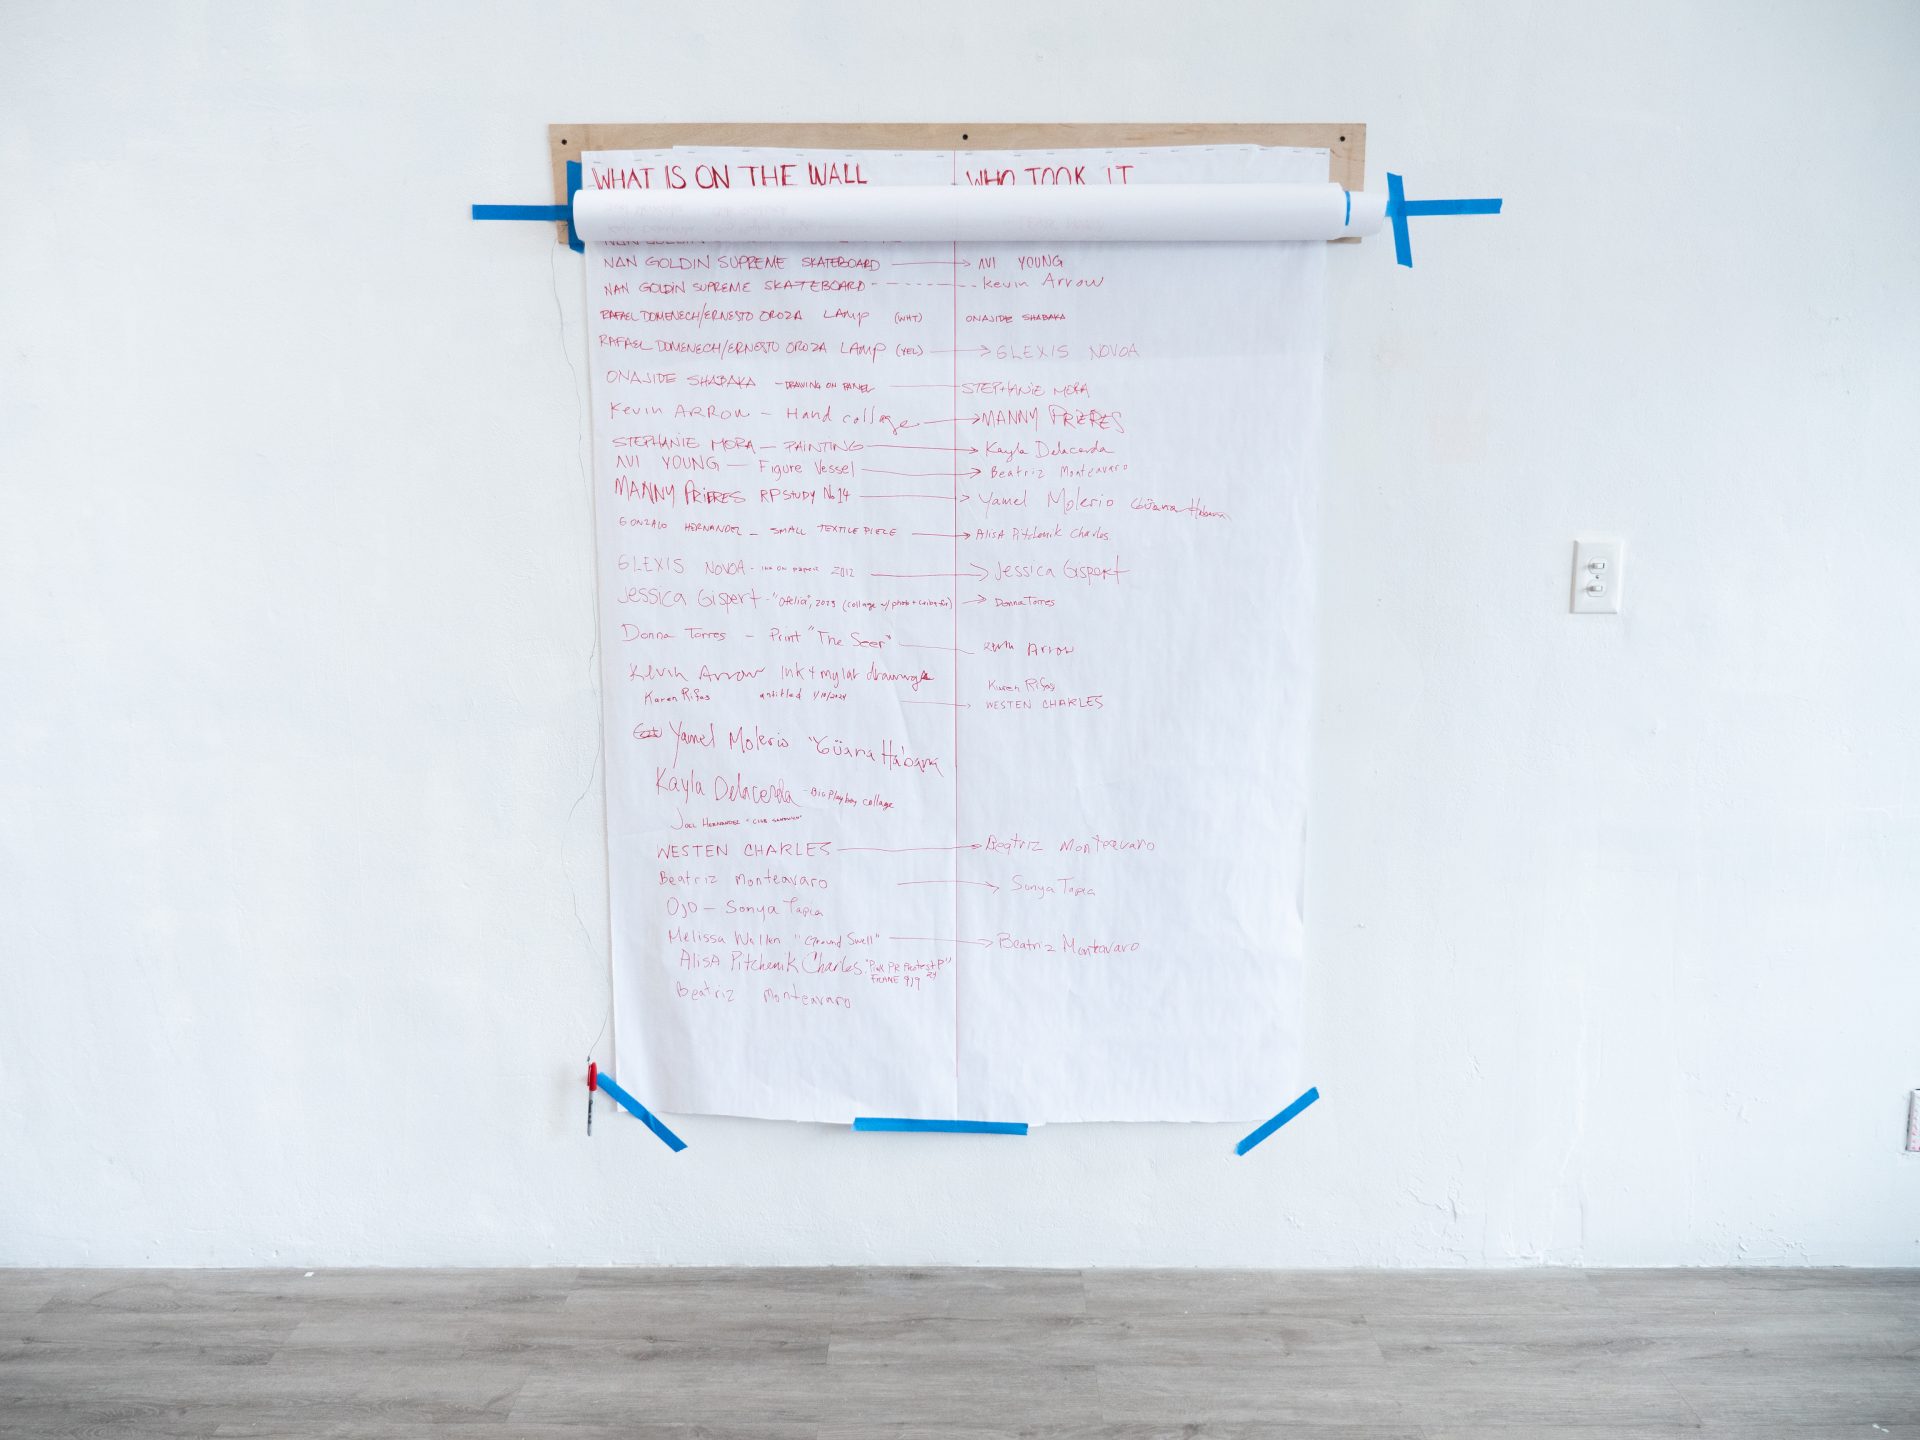 WHAT IS ON THE WALL WHO TOOK IT
NAN GOLDIN
NAN GOLDIN SUPREME SKATEBOARD AVI YOUNG
NAN GOLDIN SUPREME SKATEBOARD Kevin Arrow
RAFAEL DOMENECH/ERNESTO OROZA LAMP (WHT) ONAJIDE SHABAKA
RAFAEL DOMENECH/ERNESTO OROZA LAMP (YEL) GLEXIS NOVOA
ONAJIDE SHABAKA - DRAWING ON PANEL STEPHANIE MORA
Kevin ARROW - Hand collage MANNY PRIERES
STEPHANIE MORA - PAINTING Kayla Delacerda
AVI YOUNG - Figure Vessel Beatriz Monteavaro
MANNY PRIERES RP STUDY No 14 Yamel Molerio Güana Habana
GONZALO HERNANDEZ - SMALL TEXTILE PIECE Alisa Pitchenik Charles
GLEXIS NOVOA - INK ON PAPER 2012 Jessica Gispert
Jessica Gispert - "Ofelia", 2023 (collage w/ photo + Donna Torres
Donna Torres - Print "The Seer" Kevin Arrow
Kevin Arrow Ink + mylar drawing
Karen Rifas untitled Karen Rifas
WESTEN CHARLES
Yamel Molerio "Güana Habana
Kayla Delacerda - Big Playboy collage
Joel Hernandez "CLUB SANDWICH"
WESTEN CHARLES Beatriz Monteavaro
Beatriz Monteavaro Sonya Tapia
OJO - Sonya Tapia
Melissa Wallen "Ground Swell" Beatriz Monteavaro
Alisa Pitchenik Charles "Pink PR Protest P"
FRAME 9/9 24
Beatriz Monteavaro